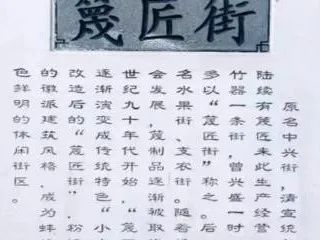 篾匠街
原名中兴街，清宣统
陆续有篾匠来此生产经营
竹器一条街，曾兴盛一时
多以“篾匠街”称之。后
名水果街、支农街。随着
会发展，篾制品逐渐被取
世纪九十年代开始，“篾
逐渐演变成传统特色“小
改造后的“篾匠街”，粉
的徽派建筑风格，成为蚌
色鲜明的休闲街区。